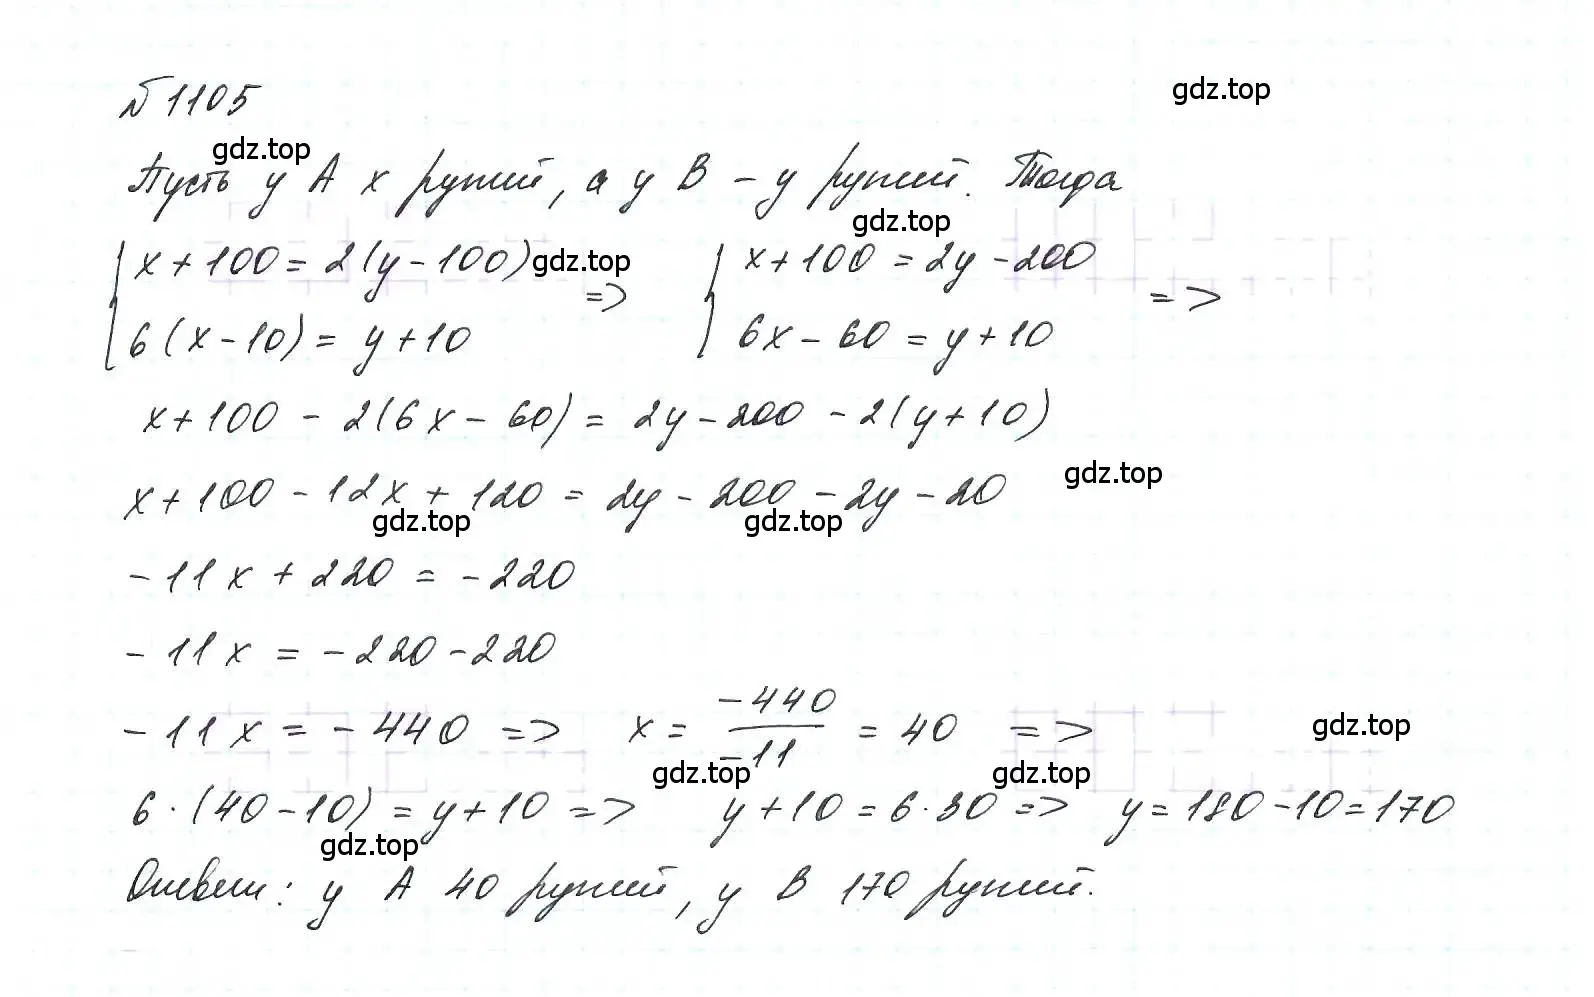 №1105
gdz.top
gdz.top
Пусть у А x рупий, а у В – y рупий. Тогда
gdz.top
{ x + 100 = 2(y - 100) gdz.top => { x + 100 = 2y - 200 =>
6(x - 10) = y + 10 6x - 60 = y + 10
x + 100 - 2(6x - 60) = 2y - 200 - 2(y + 10)
gdz.top
x + 100 - 12x + 120 = 2y - 200 - 2y - 20
gdz.top gdz.top
-11x + 220 = -220
-11x = -220 - 220
-11x = -440 => x = -440/-11 = 40 => gdz.top
gdz.top gdz.top
6 · (40 - 10) = y + 10 => y + 10 = 6 · 30 => y = 180 - 10 = 170
gdz.top
Ответ: у А 40 рупий, у В 170 рупий.